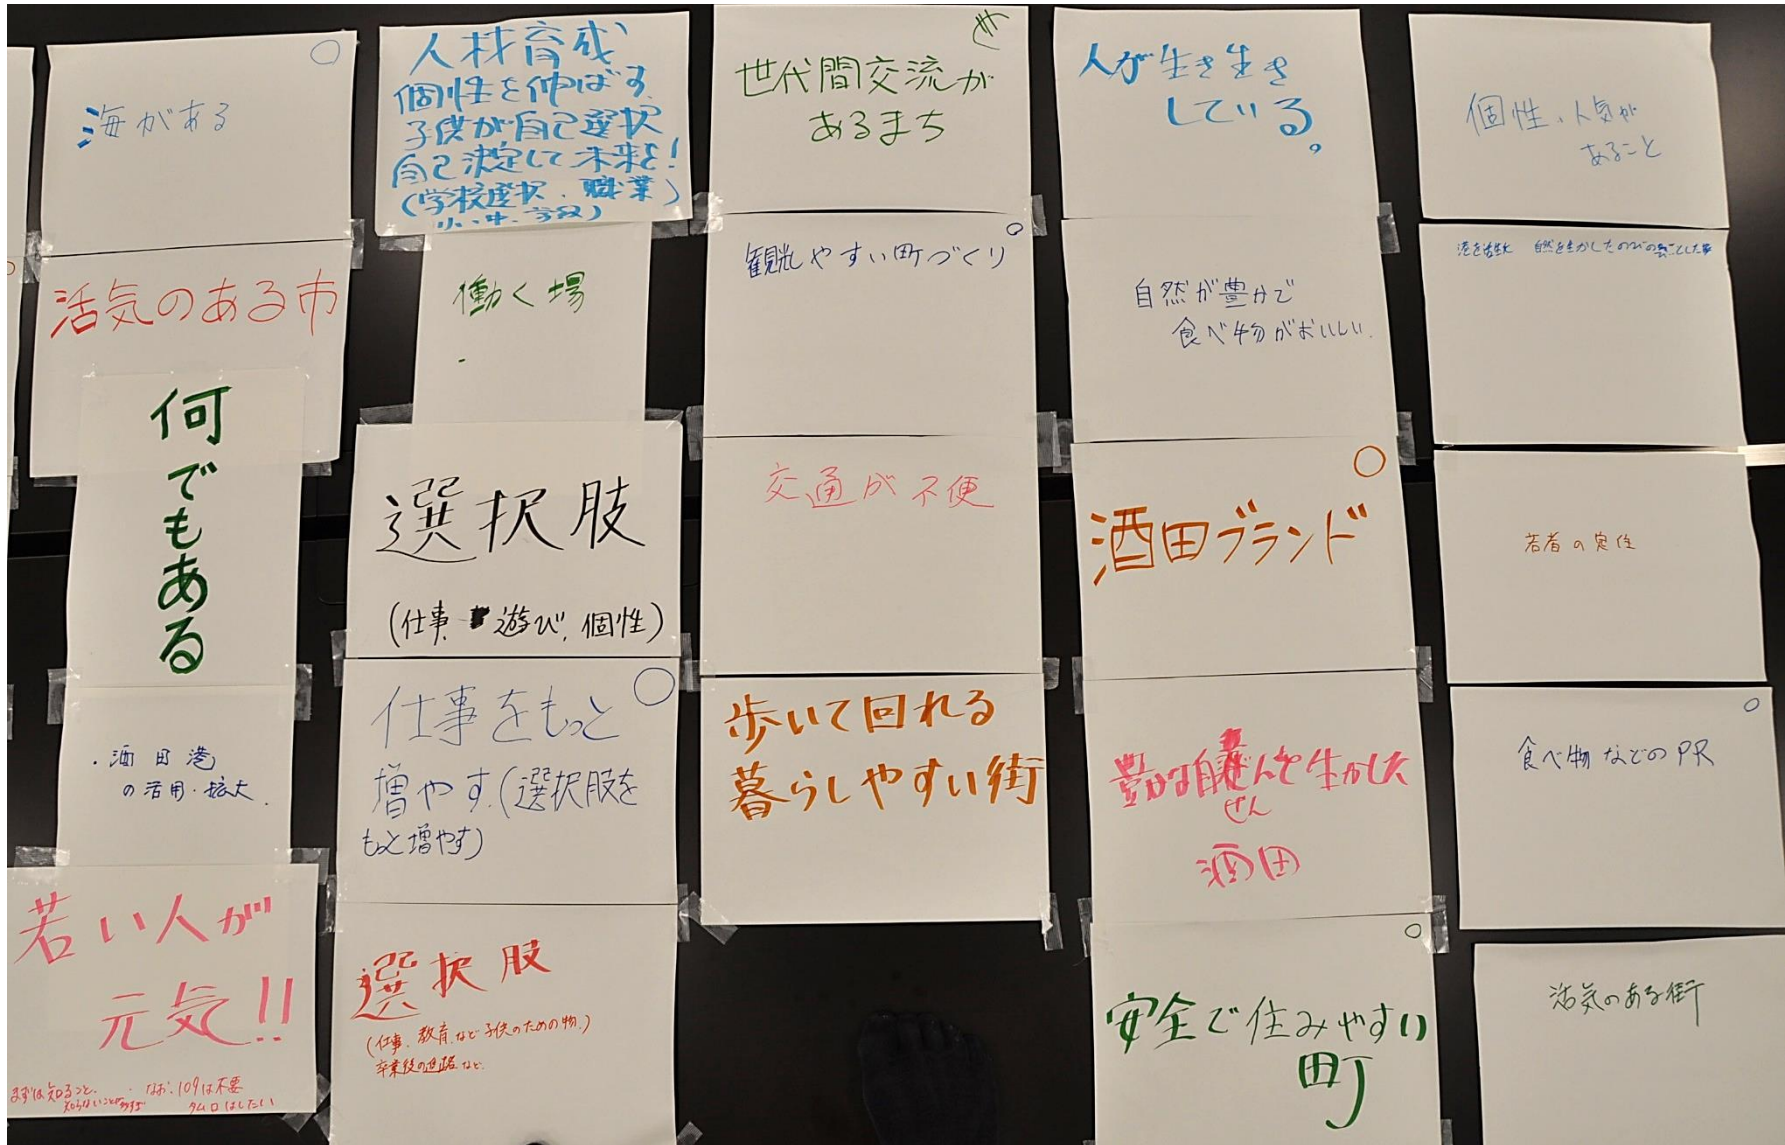 海がある
活気のある市
何でもある
・酒田港
の活用・拡大.
若い人が
元気!!
まずは知ること.
なお、109は不要
タムロはしたい
人材育成
個性を伸ばす.
子供が自己選択
自己決定して未来を!
(学校選択、職業)
働く場
選択肢
(仕事、遊び、個性)
仕事をもっと
増やす.(選択肢を
もっと増やす)
選択肢
(仕事、教育、など子供のための物.)
卒業後の進路など.
世代間交流が
あるまち
観光しやすい町づくり
交通が不便
歩いて回れる
暮らしやすい街
人が生き生き
している。
自然が豊かで
食べ物がおいしい.
酒田ブランド
豊かな自ぜんを生かした
ぜん
酒田
安全で住みやすい
町
個性、人気が
あること
自然を生かしたのびのび
若者の定住
食べ物などのPR
活気のある街